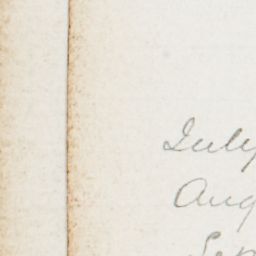 July
Aug
Sep